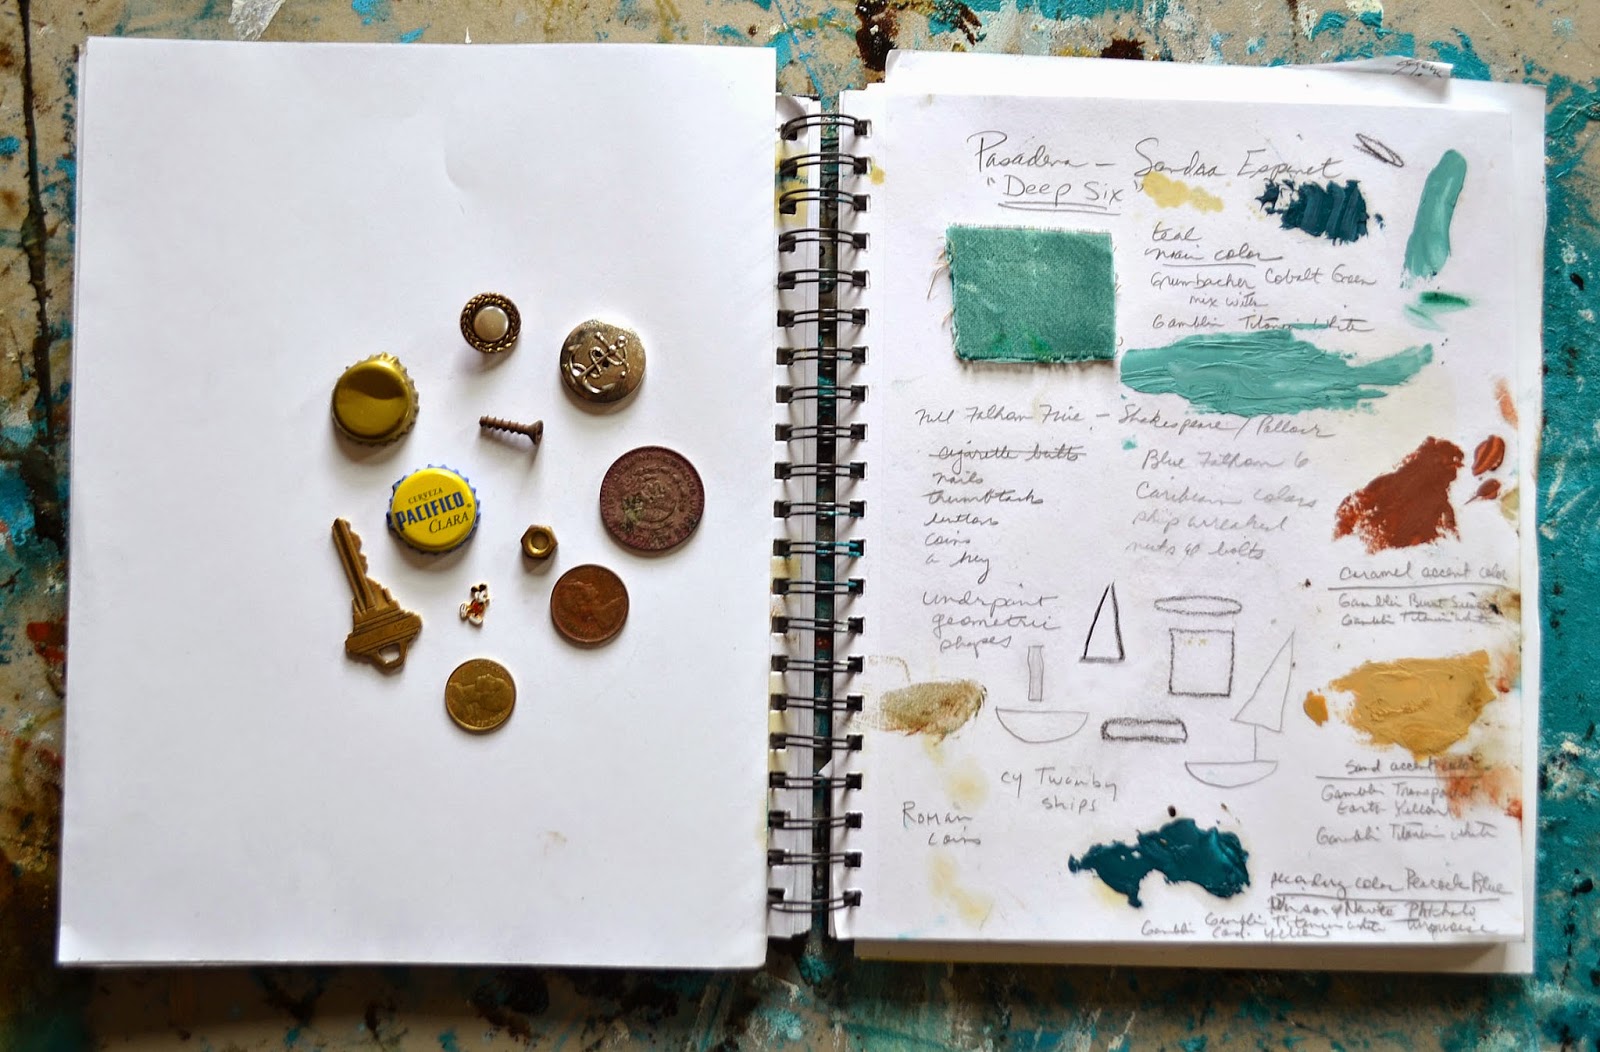 CERVEZA
PACIFICO
CLARA
Pasadena – Sandra Espinet
"Deep Six"
teal
main color
Grumbacher Cobalt Green
mix with
Gamblin Titanium White
Full Fathom Five, – Shakespeare / Pollock
cigarette butts
nails
thumbtacks
buttons
coins
a key
Blue Fathom 6
Caribbean colors
ship wrecked
nuts & bolts
underpaint
geometric
shapes
Caramel accent color
Gamblin Burnt Sienna
Gamblin Titanium White
Cy Twombly
ships
Roman
Coins
Sand accent color
Gamblin Transparent
Earth Yellow
Gamblin Titanium White
color Peacock Blue
Phthalo
Gamblin Titanium White Turquoise
Gamblin Cad. Yellow